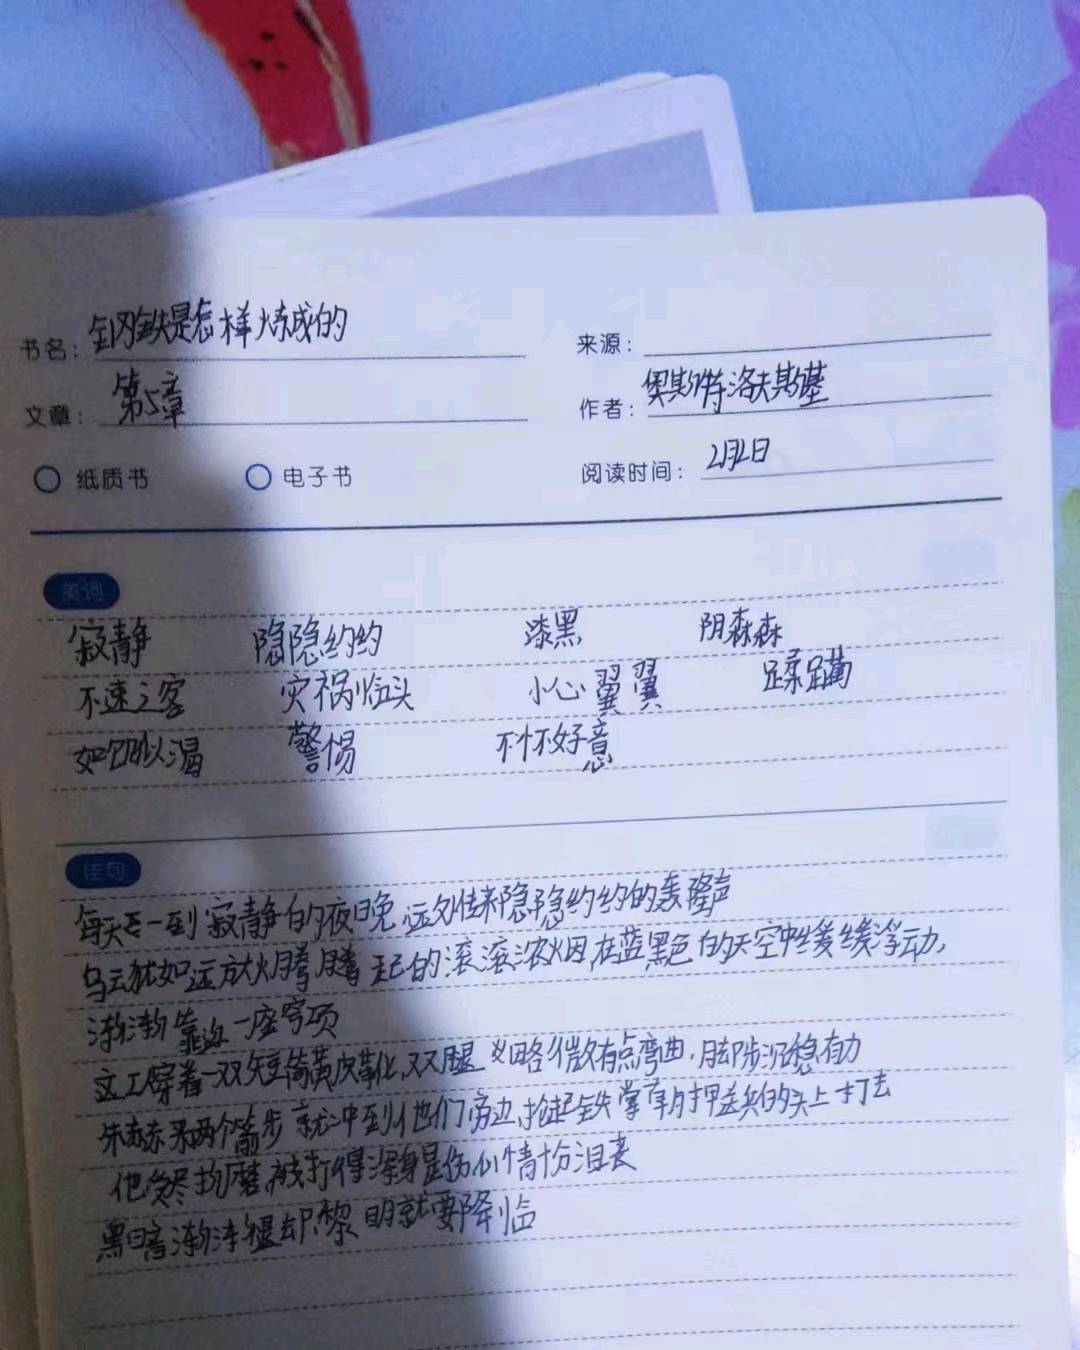 书名：钢铁是怎样炼成的
来源：
文章：第5章
作者：奥斯特洛夫斯基
纸质书 电子书 阅读时间：2月2日
美词
寂静 隐隐约约 漆黑 阴森森
不速之客 灾祸临头 小心翼翼 蹂躏
如饥似渴 警惕 不怀好意
佳句
每天一到寂静的夜晚 远处传来隐隐约约的轰隆声
乌云犹如远方火腾腾起的滚滚浓烟,在蓝黑色的天空中缓缓浮动,
渐渐靠近一座穹顶
这工穿着一双短筒黄皮靴,双腿 略微有点弯曲,脚步沉稳有力
朱赫来两个箭步就冲到他们旁边,抡起铁掌朝押送兵的头上打去
他受尽折磨,被打得浑身是伤 心情十分沮丧
黑暗渐渐褪却 黎明就要降临